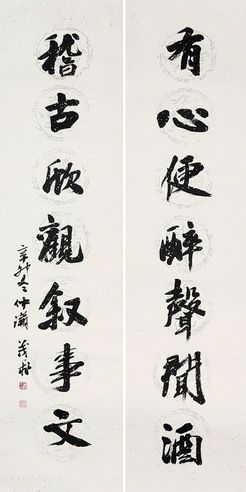 有心便醉聲聞酒
稽古欣觀叙事文
辛卯冬仲瀚